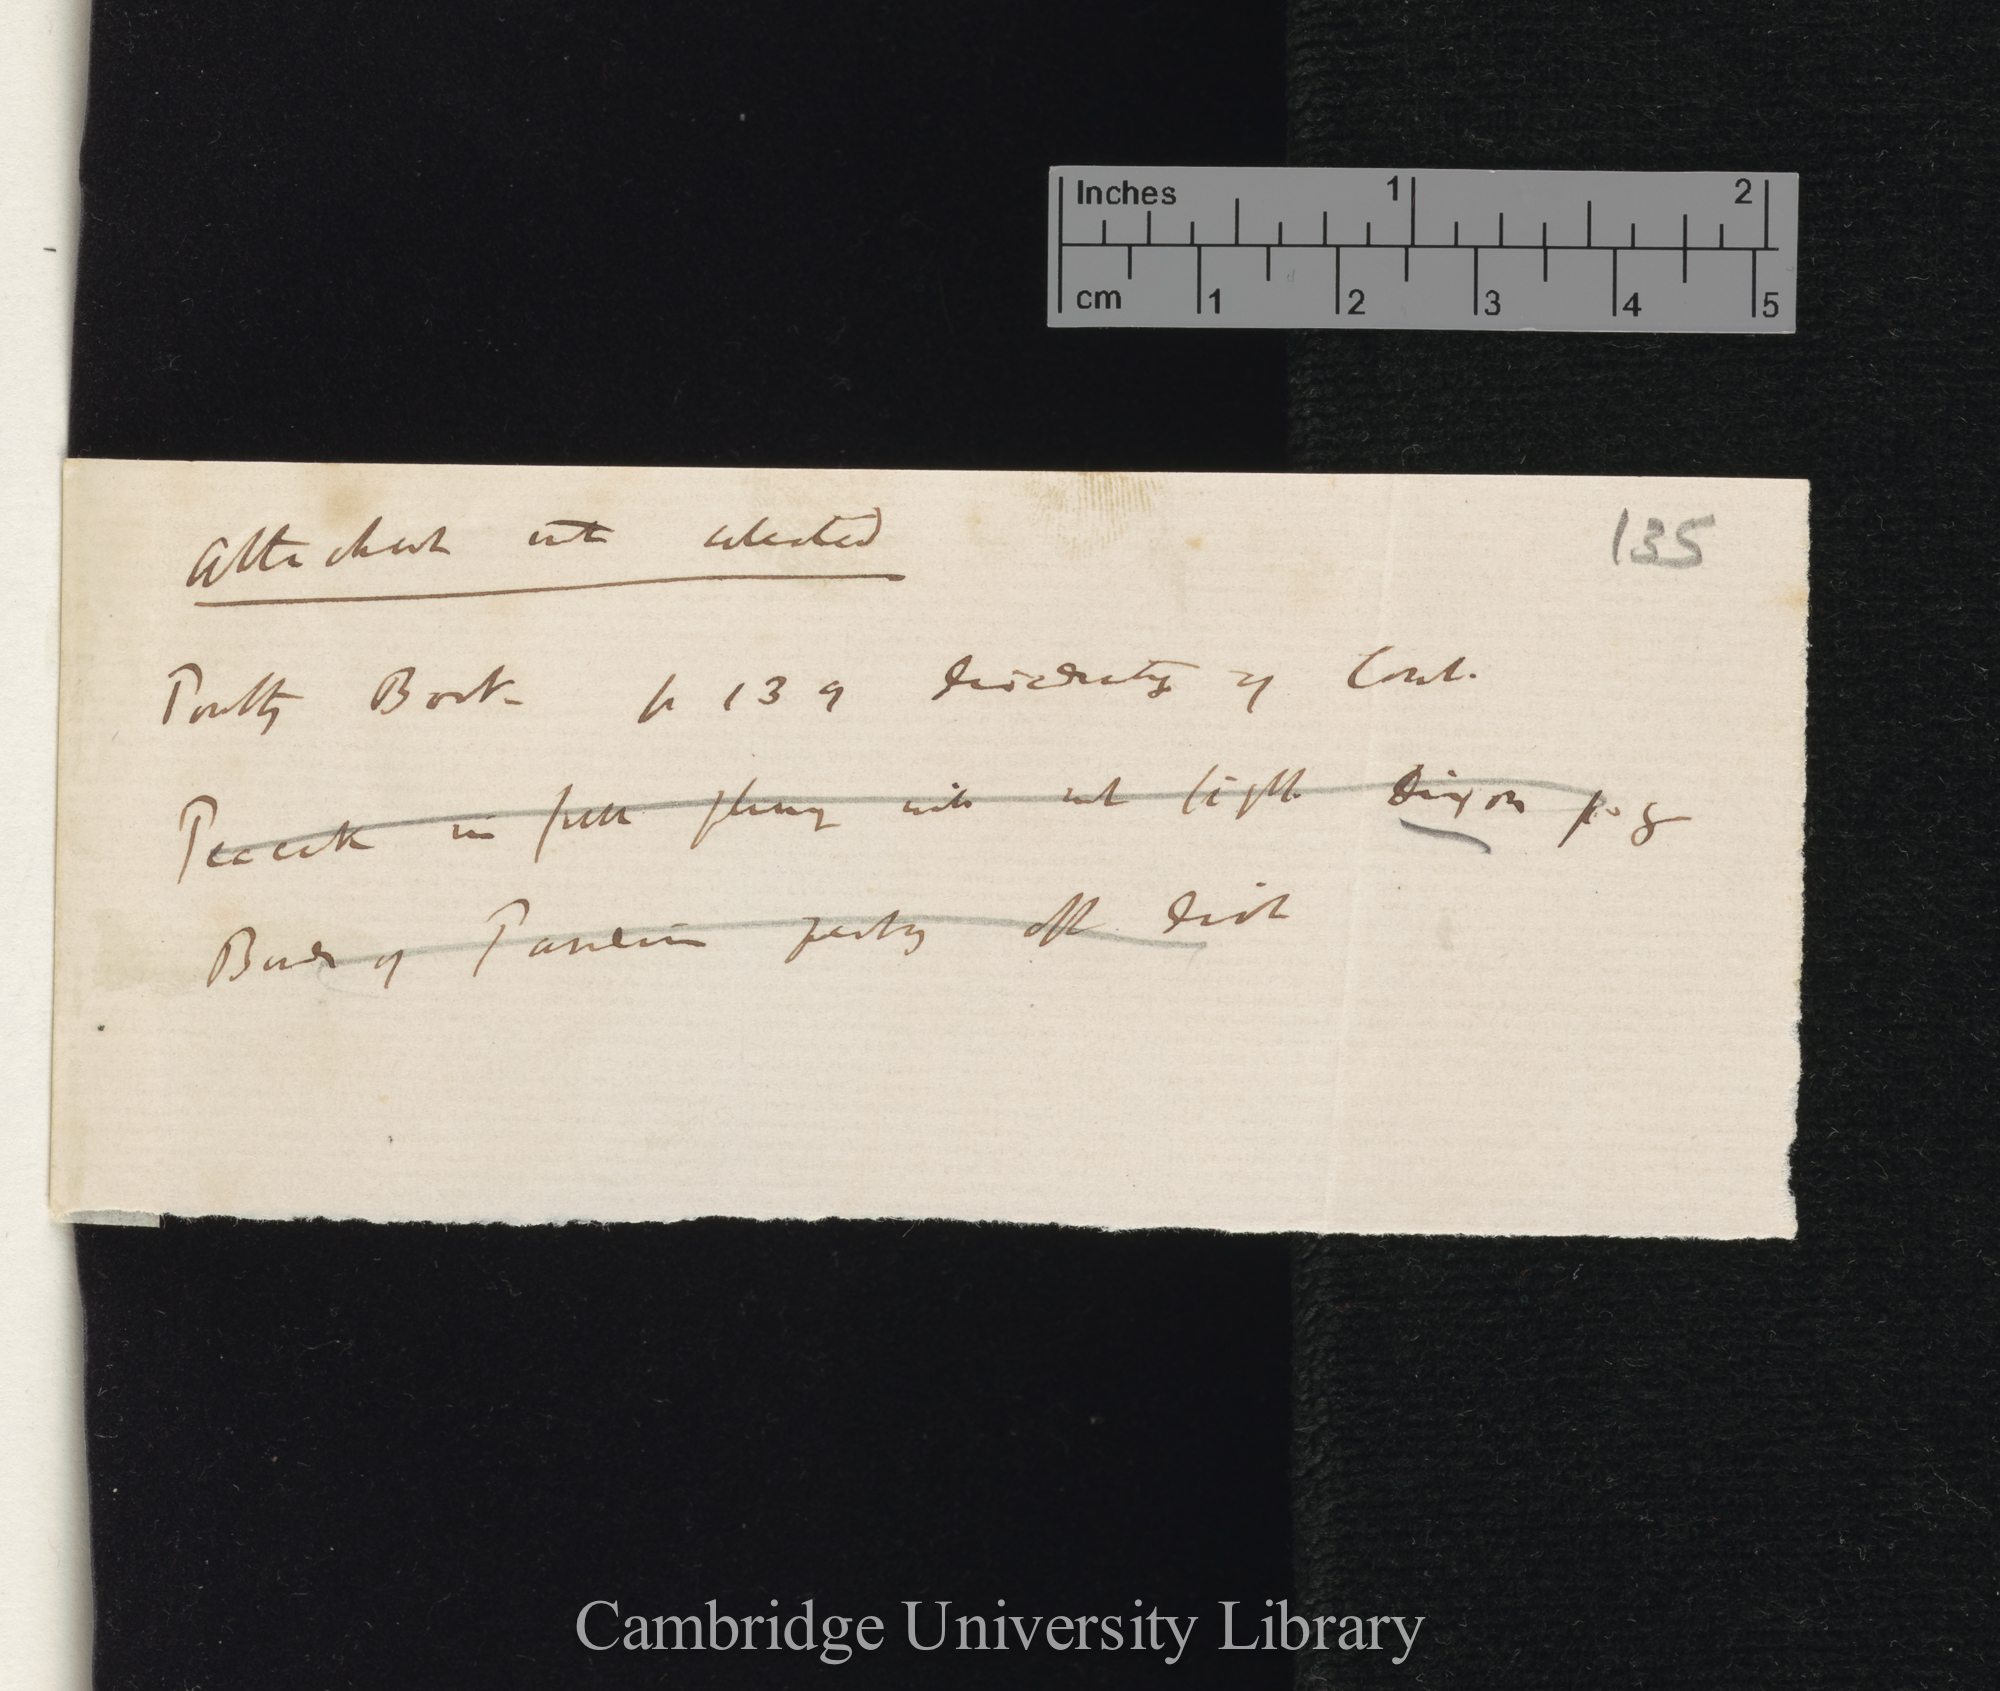 Inches 1 2
cm 1 2 3 4 5
135
Attachment not selected
Poultry Book p 139 diversity of Comb.
Peacock in full plumage will not fight Dixon p. 8
Birds of Paradise partly off dist
Cambridge University Library